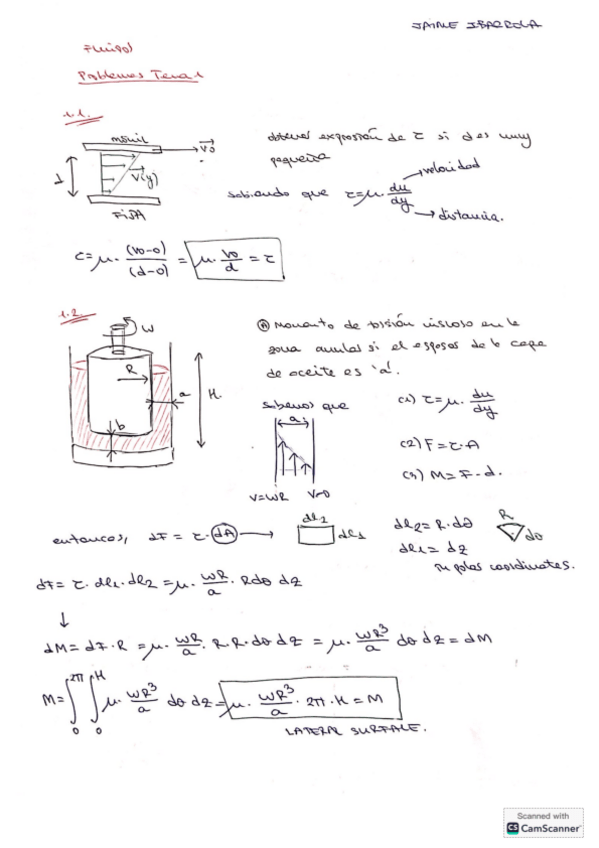 JAIME IBARROLA
Fluidos
Problemas Tema 1
1.1.
móvil
V0
d
V(y)
FIJA
obtener expresión de τ si d es muy
pequeña
sabiendo que τ = μ · du/dy
velocidad
distancia.
τ = μ · (V0-0)/(d-0) = μ · V0/d = τ
1.2
W
R
a
H
b
(A) Momento de torsión viscoso en la
zona anular si el espesor de la capa
de aceite es 'a'.
sabemos que
a
V=WR V=0
(1) τ = μ · du/dy
(2) F = τ · A
(3) M = F · d.
entonces, dF = τ · dA
dl2
dl1
dl2 = R · dθ
dl1 = dz
R
dθ
in polar coordinates.
dF = τ · dl1 · dl2 = μ · WR/a · R dθ dz
dM = dF · R = μ · WR/a · R · R · dθ dz = μ · WR³/a dθ dz = dM
M = ∫₀^2π ∫₀^H μ · WR³/a dθ dz = μ · WR³/a · 2π · H = M
LATERAL SURFACE.
Scanned with
CS CamScanner